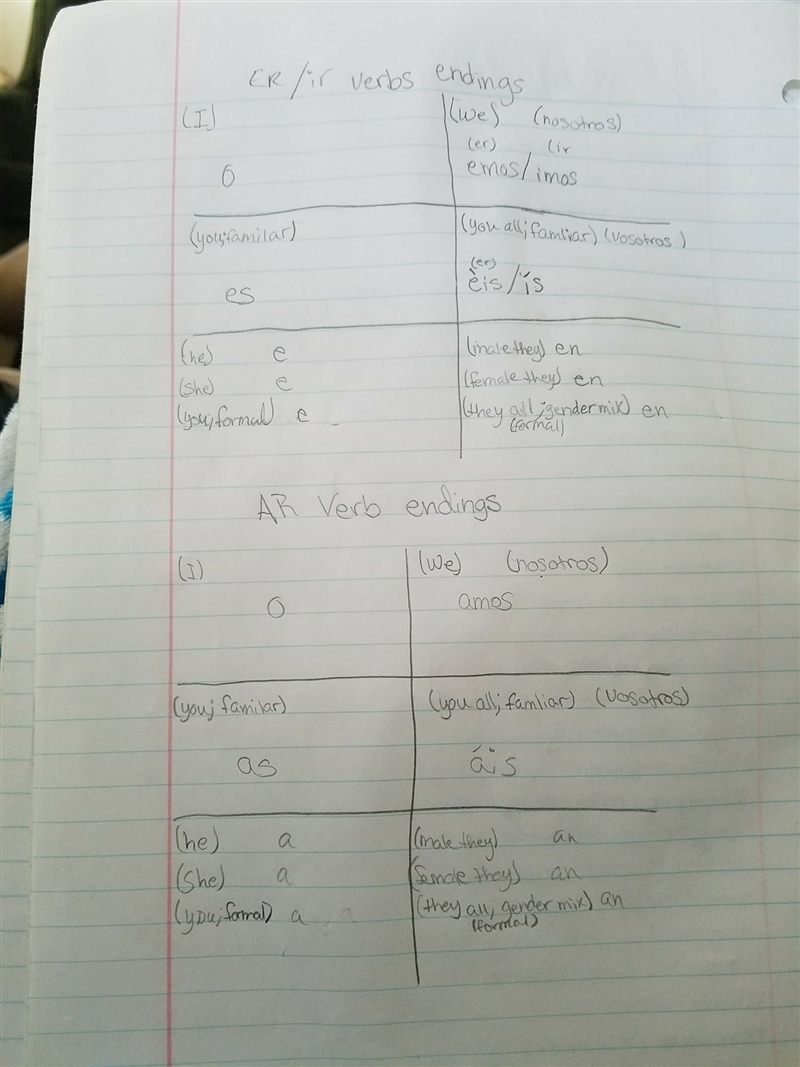 ER/ir verbs endings
(I) (we) (nosotros)
(er) (ir
o emos/imos
(you;familar) (you all; famliar) (vosotros)
(er)
es èis/ís
(he) e (male they) en
(she) e (female they) en
(you;formal) e (they all;gender mix) en
(formal)
AR Verb endings
(I) (we) (nosotros)
o amos
(you; familar) (you all; famliar) (vosotros)
as áis
(he) a (male they) an
(she) a (female they) an
(you;formal) a (they all; gender mix) an
(formal)